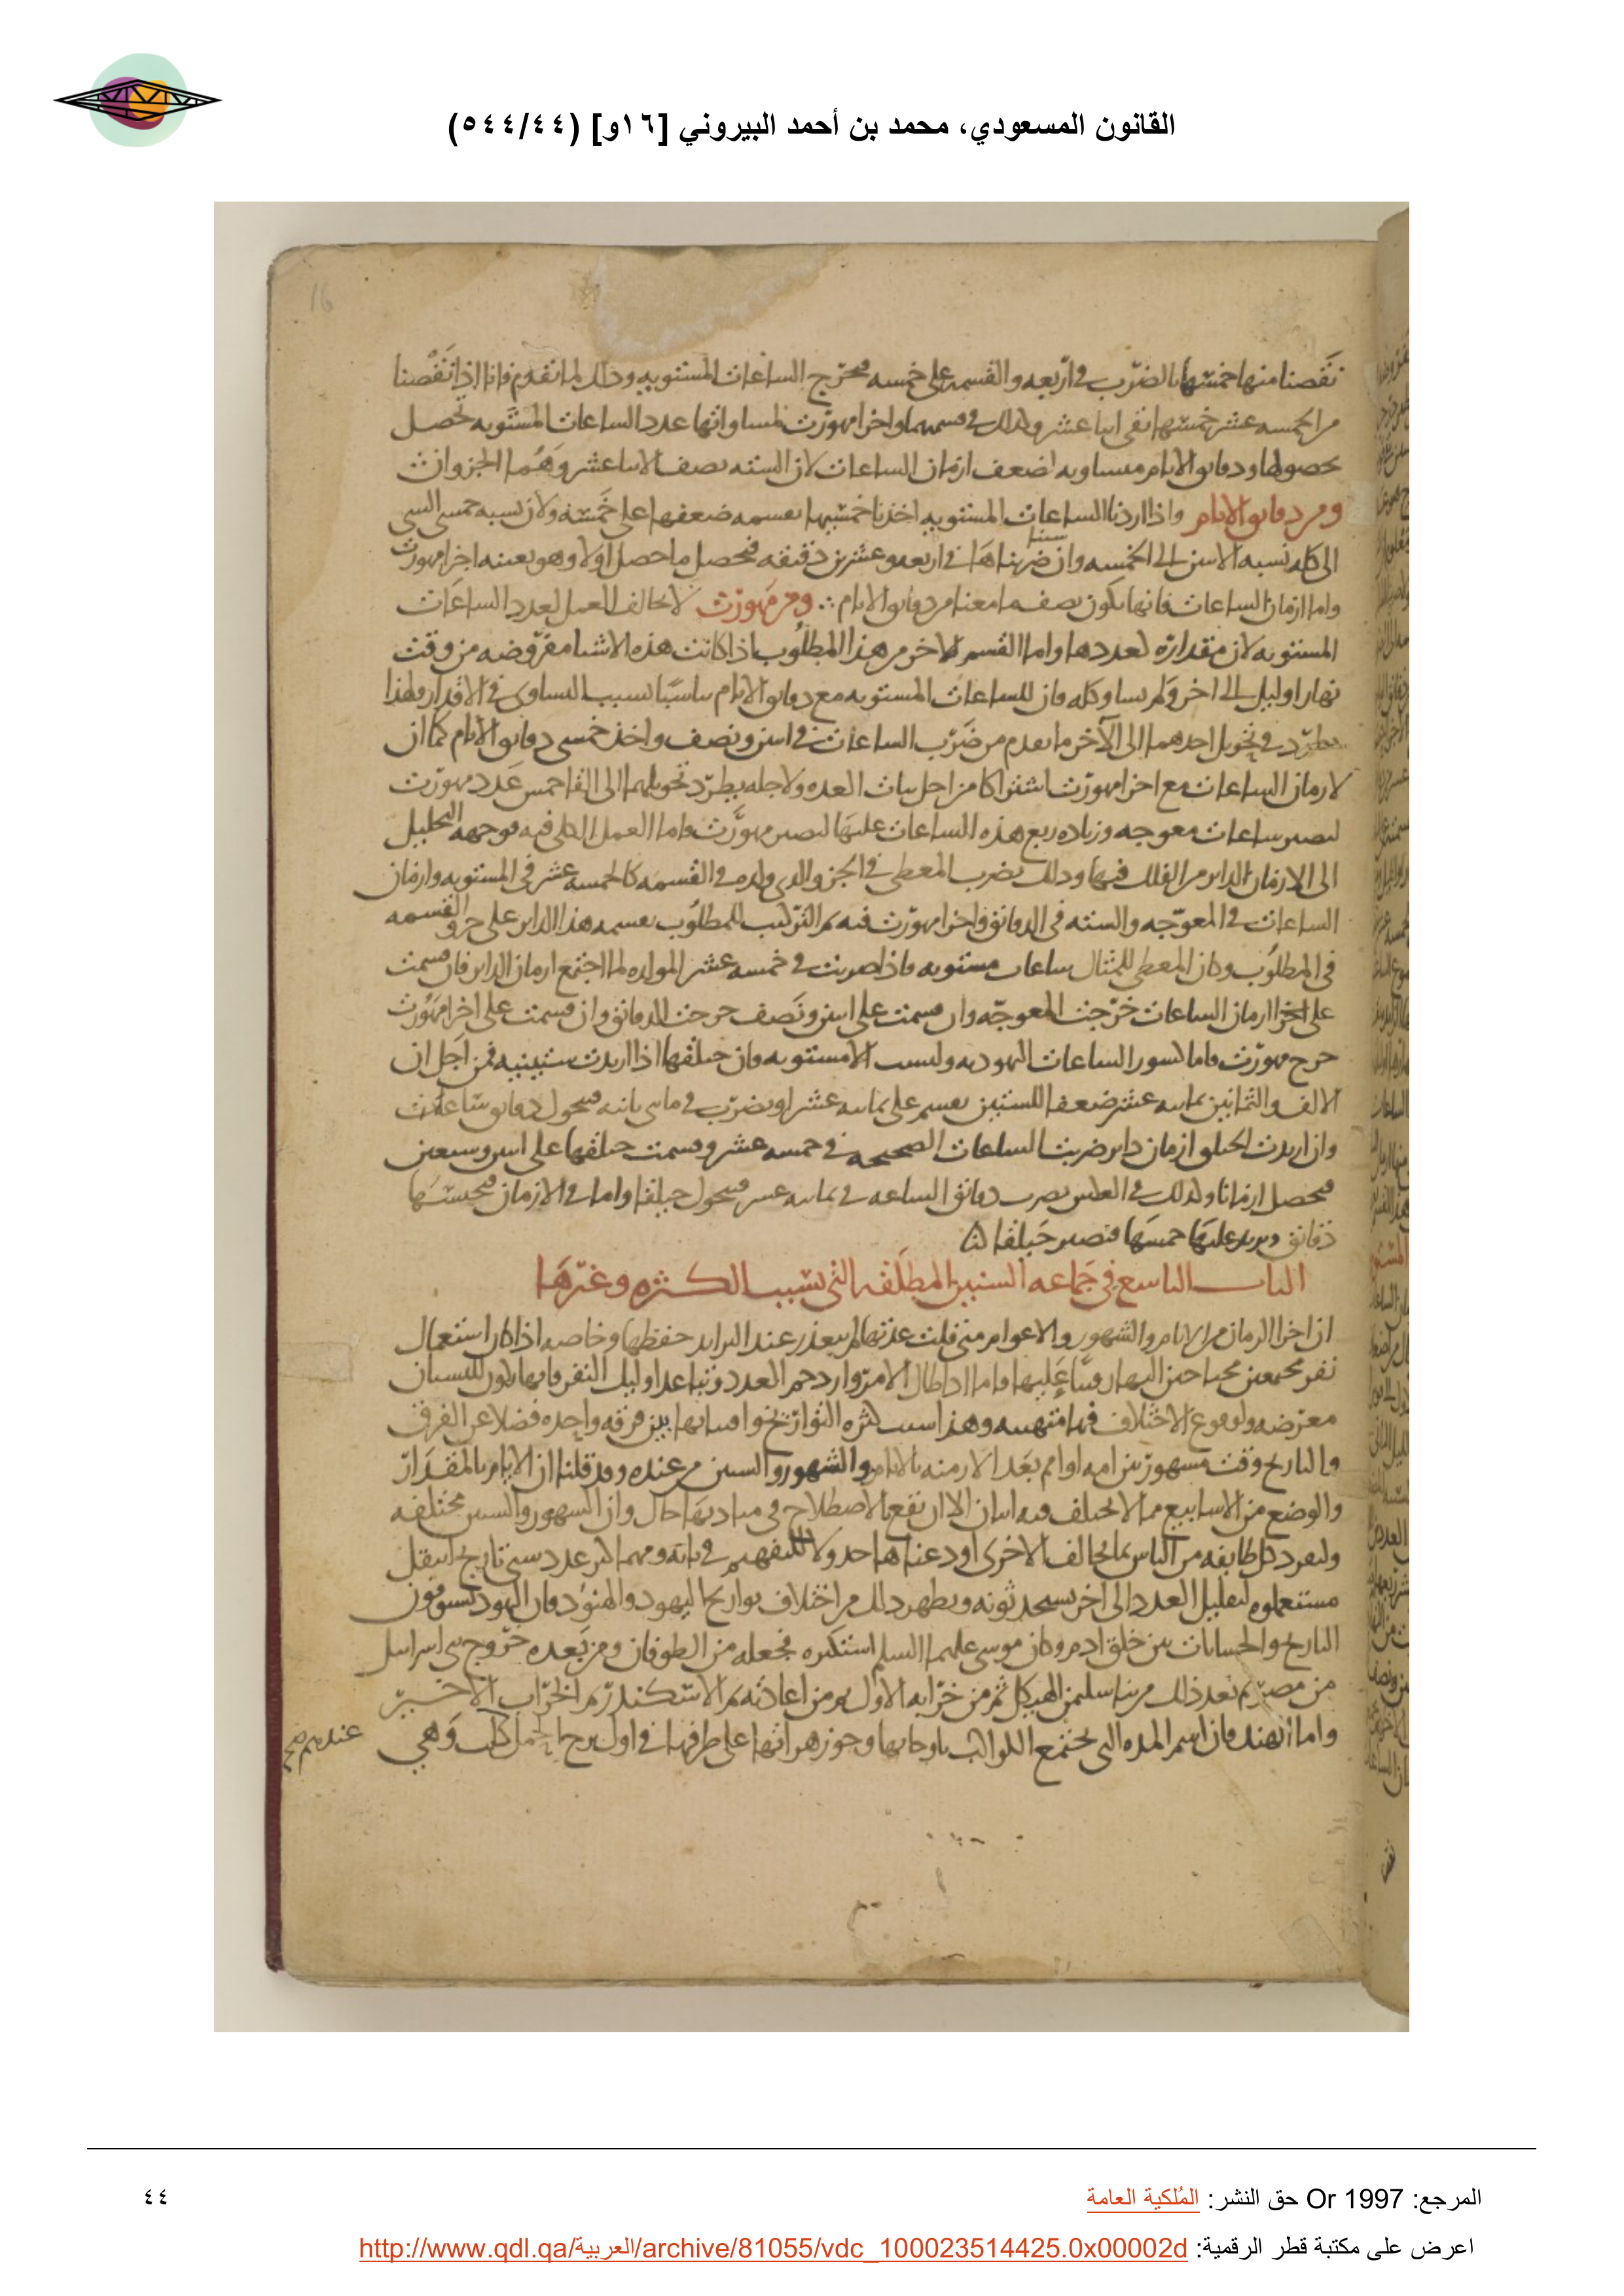 القانون المسعودي، محمد بن أحمد البيروني [١٦و] (٥٤٤/٤٤)
16
نقصنا منها خمسها بالضرب في اربعه والقسمه على خمسه فخرج الساعات المستويه وذلك لما تقدم فانا اذا نقصنا
من الخمسه عشر خمسها بقى اثنا عشر وكذلك في قسمها واخر امهورت لمساواتها عدد الساعات المستويه تحصل
بحصولها ودقايق الايام مساويه لضعف ازمان الساعات لان السته نصف الاثنا عشر وهما الجزوان
ومن دقايق الايام واذا اردنا الساعات المستويه اخذنا خمسيها بقسمه ضعفها على خمسه ولان نسبه خمسى الشى
الى كله نسبه الاثنين الى الخمسه وان ضربناها في اربعه وعشرين دقيقه فيحصل ما حصل اولا وهو بعينه اجزا مهورت
واما ازمان الساعات فانها تكون نصف ما معنا من دقايق الايام ومن مهورت لا يخالف العمل لعدد الساعات
المستويه لان مقداره لعددها واما القسم الاخر من هذا المطلوب اذا كانت هذه الاشيا مفروضه من وقت
نهار او ليل الى اخر ولم يساو كله فان للساعات المستويه مع دقايق الايام تناسبا لسبب التساوى في الاقدار ولهذا
يطرد في تحويل احدهما الى الآخر ما تقدم من ضرب الساعات في اثنين ونصف واخذ خمسى دقايق الايام كما ان
لازمان الساعات مع اجزا مهورت اشتراكا من اجل ثبات العده ولاجله يطرد تحويلهما الى القا خمس عدد مهورت
ليصير ساعات معوجه وزياده ربع هذه الساعات عليها ليصير مهورت واما العمل الكلى فيه فوجهه التحليل
الى الازمان الداير من الفلك فيها وذلك بضرب المعطى في الجزو الذي ولده في القسمه كالخمسه عشر في المستويه وازمان
الساعات في المعوجه والسته في الدقائق واجزا مهورت فيه ثم التركيب للمطلوب بقسمه هذا الداير على جزو القسمه
في المطلوب وكان المعطى للمثال ساعات مستويه فاذا ضربت في خمسه عشر المولده لها اجتمع ازمان الداير فان قسمت
على اجزا ازمان الساعات خرجت المعوجه وان قسمت على اثنين ونصف خرجت الدقائق وان قسمت على اجزا مهورت
خرج مهورت واما كسور الساعات اليهوديه وليست الا مستويه فان حيلقها اذا اريدت ستينيه فمن اجل ان
الالف والثمانين ثمانيه عشر ضعفا للستين يقسم على ثمانيه عشر او يضرب في ثانيه فيتحول دقايق ساعات
وان اريدت الحيلق ازمان داير ضربت الساعات الصحيحه في خمسه عشر وقسمت حيلقها على اثنين وسبعين
فيحصل ازمانا وكذلك في العكس يضرب دقائق الساعه في ثمانيه عشر فيتحول حيلقا واما في الازمان
دقائق ويزيد عليها خمسها فتصير حيلقا لها
الباب التاسع في جماعه السنين المطلقه التي تسبب الكثره وغيرها
ان اجزا الزمان من الايام والشهور والاعوام متى قلت عدتها لم يتعذر عند التزايد حفظها وخاصه اذا كان استعمال
نفر مجتمعين عليها واما اذا طال الامر وازدحم العدد وتباعد اوليك النفر فانها تكون للنسيان
معرضه ولوقوع الاختلاف فيها متهيئه وهذا سبب كثره التواريخ بين فرقه واحده فضلا عن الفرق
والتاريخ وقت مشهور بين امه او امم يعد الازمنه بالايام والشهور والسنين من عنده وقد قلنا ان الايام بالمقدار
والوضع من الاسابيع مما لا يختلف فيه اثنان الا ان تقع بالاصطلاح في مباديها حال وان الشهور والسنين مختلفه
ولتفرد كل طايفه من الناس بما يخالف الاخرى ومهما كثر عدد سنى تاريخ انتقل
مستعملوه لتقليل العدد الى اخر ويظهر ذلك من اختلاف تواريخ اليهود والهنود فان اليهود يسوقون
التاريخ والحسابات من خلق ادم وكان موسى عليهما السلم استكثره فجعله من الطوفان ومن بعده خروج بنى اسرايل
من مصر ثم بعد ذلك من بنا سليمن الهيكل ثم من خرابه الاول ثم من اعادته ثم الاسكندر ثم الخراب الاخير
واما الهند فان اسم المده التي تجتمع الكواكب باوجاتها وجوزهراتها على طرفيها في اول برج الحمل كلب وهي
عندهم
المرجع: Or 1997 حق النشر: المُلكية العامة
٤٤
اعرض على مكتبة قطر الرقمية: http://www.qdl.qa/العربية/archive/81055/vdc_100023514425.0x00002d